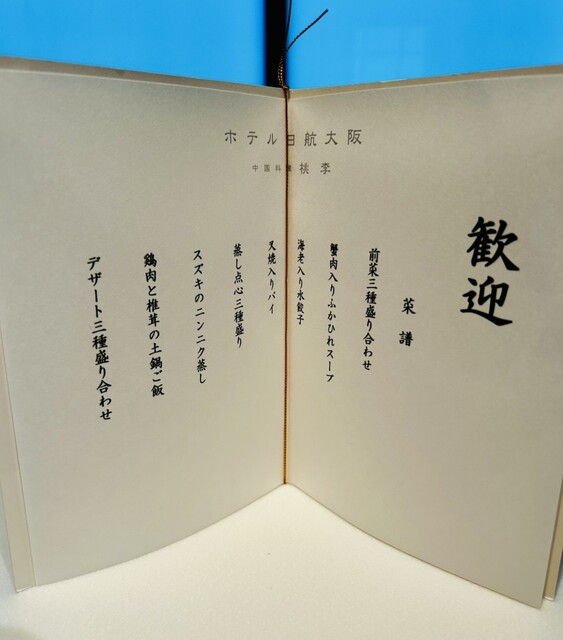 ホテル日航大阪
中国料理 桃李
歓迎
菜譜
前菜三種盛り合わせ
蟹肉入りふかひれスープ
海老入り水餃子
叉焼入りパイ
蒸し点心三種盛り
スズキのニンニク蒸し
鶏肉と椎茸の土鍋ご飯
デザート三種盛り合わせ